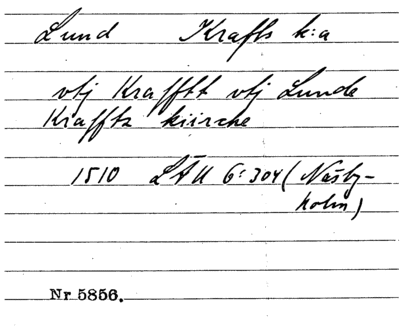 Lund Krafts k:a
vtj Krafftt vtj Lunde
Kraffts kiirche
1510 LÄU 6:304 (Näsby-
holm)
Nr 5856.